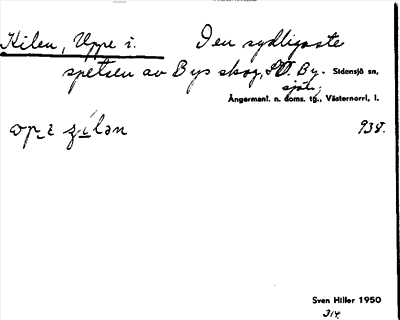 Kilen, Uppe i. I den sydligaste
spetsen av Bys skog, SV. By- Sidensjö sn,
sjöt;
Ångermanl. n. doms. tg., Västernorrl. l.
938.
Sven Hiller 1950
314